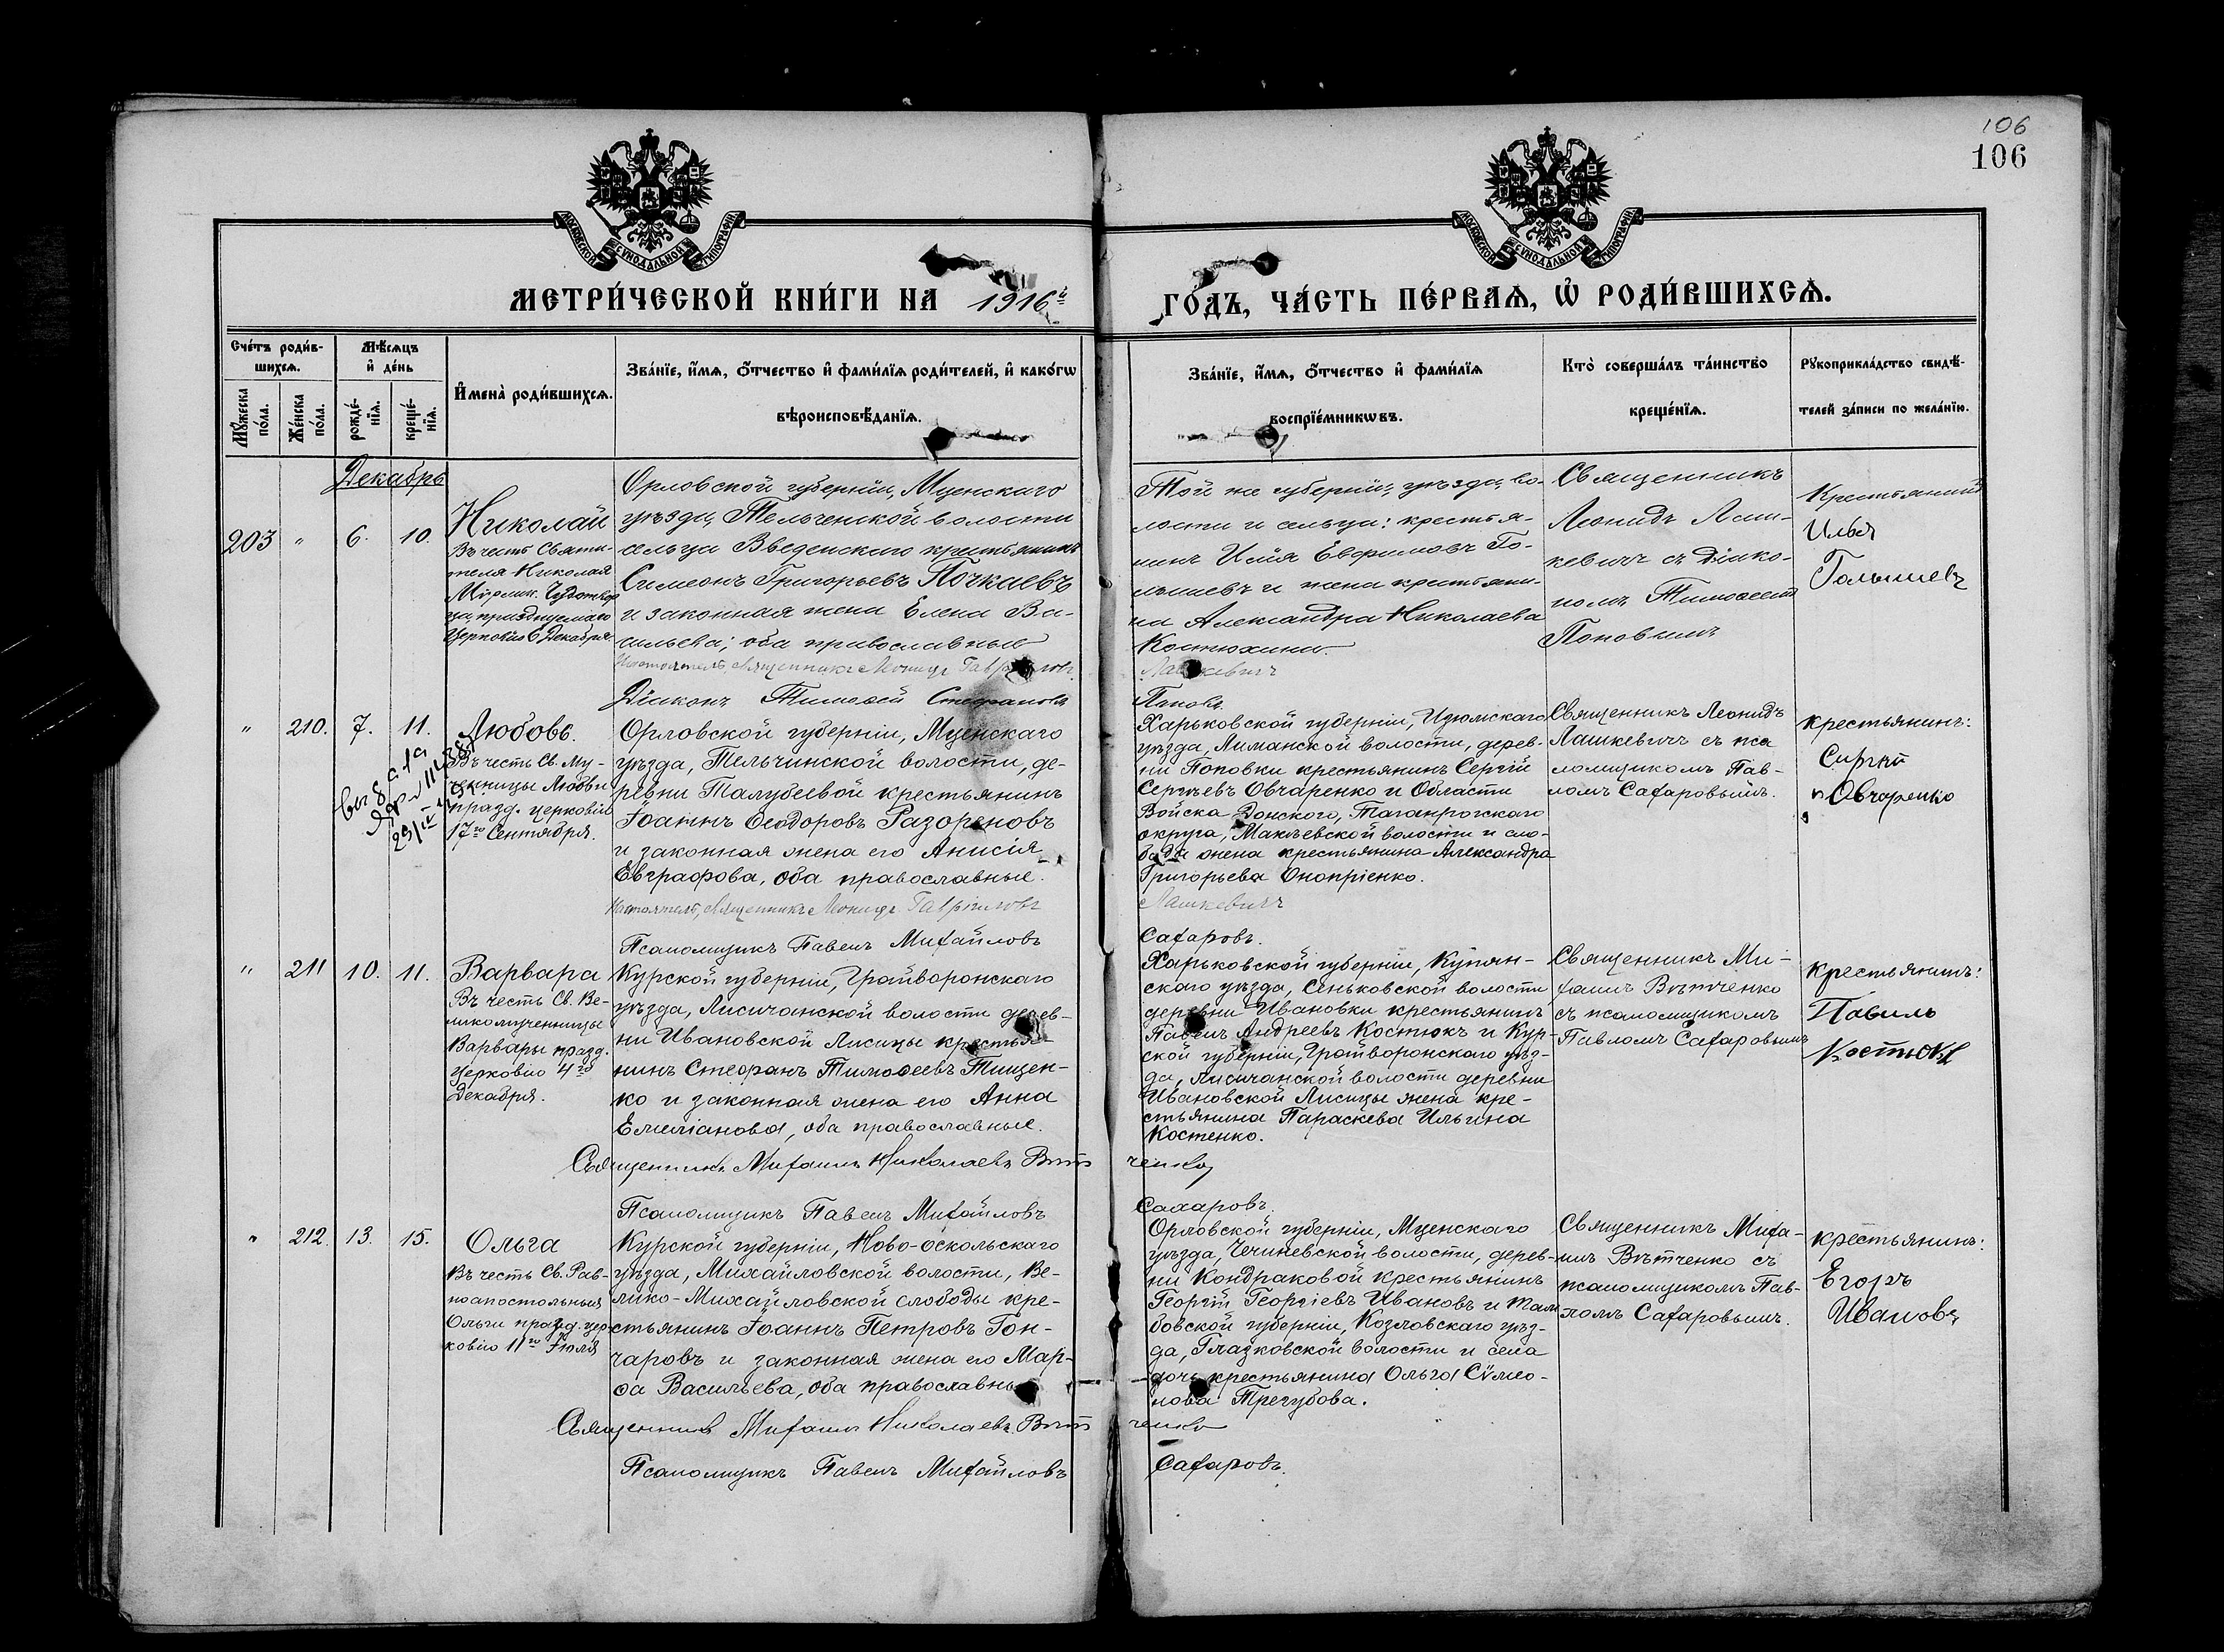 106
106
МОСКОВСКОЙ СУНОДАЛЬНОЙ ТИПОГРАФІИ
МОСКОВСКОЙ СУНОДАЛЬНОЙ ТИПОГРАФІИ
МЕТРИ́ЧЕСКОЙ КНИ́ГИ НА 1916й
ГО́ДЪ, ЧА́СТЬ ПЕ́РВАѦ, Ѽ РОДИ́ВШИХСѦ.
Сче́тъ роди́в-
шихсѧ.
Мꙋ́жеска по́ла.
Же́нска по́ла.
Мѣ́сѧцъ
и҆ де́нь
рожде́-
нїѧ.
креще́-
нїѧ.
И҆мена̀ роди́вшихсѧ.
Зва́нїе, и҆́мѧ, ѻ҆́тчество и҆ фами́лїѧ роди́телей, и҆ како́гѡ
вѣроисповѣ́данїѧ.
Зва́нїе, и҆́мѧ, ѻ҆́тчество и҆ фами́лїѧ
воспрїе́мникѡвъ.
Кто̀ соверша́лъ та́инство
креще́нїѧ.
Рꙋкоприкла́дство свидѣ́-
телей за́писи по жела́нїю.
Декабрь
203 " 6. 10.
Николай
Въ честь Святи-
теля Николая
Мѵрлик. Чудотвор
ца, празднуемаго
Церковію 6 Декабря
Орловской губерніи, Мценскаго
уѣзда, Тельченской волости
сельца Введенскаго крестьянинъ
Симеонъ Григорьевъ Почкаевъ
и законная жена Елена Ва-
сильева; оба православные
Настоятель, священникъ Леонидъ Гавріиловъ
Діаконъ Тимоѳей Стефановъ
Той же губерніи, уѣзда, во-
лости и сельца: крестья-
нинъ Илія Евфимовъ Го-
лышевъ и жена крестьяни-
на Александра Николаева
Костюхина
Лашкевичъ
Поповъ
Священникъ
Леонидъ Лаш-
кевичъ съ діако-
номъ Тимоѳеемъ
Поповымъ
Крестьянинъ
Илья
Голышевъ
" 210. 7. 11.
Любовь.
Въ честь Св. Му-
ченицы Любви
празд. церковію
17го Сентября.
Орловской губерніи, Мценскаго
уѣзда, Тельчинской волости, де-
ревни Талубеевой крестьянинъ
Іоаннъ Ѳеодоровъ Разореновъ
и законная жена его Анисія
Евграфова, оба православные.
Настоятель, священникъ Леонидъ Гавріиловъ
Псаломщикъ Павелъ Михайловъ
Харьковской губерніи, Изюмскаго
уѣзда, Лиманской волости, дерев-
ни Поповки крестьянинъ Сергій
Сергѣевъ Овчаренко и Области
Войска Донского, Таганрогскаго
округа, Макѣевской волости и сло-
боды жена крестьянина Александра
Григорьева Онопріенко.
Лашкевичъ
Сахаровъ.
Священникъ Леонидъ
Лашкевичъ съ пса
ломщикомъ Пав-
ломъ Сахаровымъ.
крестьянинъ:
Сиргѣй
Овчаренко
" 211 10. 11.
Варвара
Въ честь Св. Ве-
ликомученницы
Варвары празд.
Церковію 4го
Декабря.
Курской губерніи, Грайворонскаго
уѣзда, Лисичанской волости дерев-
ни Ивановской Лисицы крестья-
нинъ Стефанъ Тимоѳеевъ Тищен-
ко и законная жена его Анна
Емеліанова, оба православные.
Священникъ Михаилъ Николаевъ Вѣт
Псаломщикъ Павелъ Михайловъ
Харьковской губерніи, Купян-
скаго уѣзда, Сеньковской волости
деревни Ивановки крестьянинъ
Павелъ Андреевъ Костюкъ и Кур-
ской губерніи, Грайворонскаго уѣз-
да, Лисичанской волости деревни
Ивановской Лисицы жена кре-
стьянина Параскева Ильина
Костенко.
ченко
Сахаровъ.
Священникъ Ми-
хаилъ Вѣтченко
съ псаломщикомъ
Павломъ Сахаровымъ
крестьянинъ:
Павилъ
Костюкъ
" 212. 13. 15.
Ольга
Въ честь Св. Рав-
ноапостольныя
Ольги празд. цер-
ковію 11го Іюля
Курской губерніи, Ново-оскольскаго
уѣзда, Михайловской волости, Ве-
лико-Михайловской слободы кре-
стьянинъ Іоаннъ Петровъ Гон-
чаровъ и законная жена его Мар-
ѳа Васильева, оба православные
Священникъ Михаилъ Николаевъ Вѣт
Псаломщикъ Павелъ Михайловъ
Орловской губерніи, Мценскаго
уѣзда, Чечиневской волости, дерев-
ни Кондраковой крестьянинъ
Георгій Георгіевъ Ивановъ и Там
бовской губерніи, Козловскаго уѣз-
да, Глазковской волости и села
дочь крестьянина Ольга Сѵмео-
нова Трегубова.
ченко
Сахаровъ.
Священникъ Миха-
илъ Вѣтченко съ
псаломщикомъ Пав-
ломъ Сахаровымъ.
крестьянинъ:
Егоръ
Ивановъ